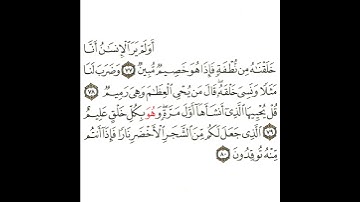 أَوَلَمْ يَرَ ٱلْإِنسَٰنُ أَنَّا
خَلَقْنَٰهُ مِن نُّطْفَةٍ فَإِذَا هُوَ خَصِيمٌ مُّبِينٌ ٧٧ وَضَرَبَ لَنَا
مَثَلًا وَنَسِىَ خَلْقَهُۥ قَالَ مَن يُحْىِ ٱلْعِظَٰمَ وَهِىَ رَمِيمٌ ٧٨
قُلْ يُحْيِيهَا ٱلَّذِىٓ أَنشَأَهَآ أَوَّلَ مَرَّةٍ وَهُوَ بِكُلِّ خَلْقٍ عَلِيمٌ
٧٩ ٱلَّذِى جَعَلَ لَكُم مِّنَ ٱلشَّجَرِ ٱلْأَخْضَرِ نَارًا فَإِذَآ أَنتُم
مِّنْهُ تُوقِدُونَ ٨٠